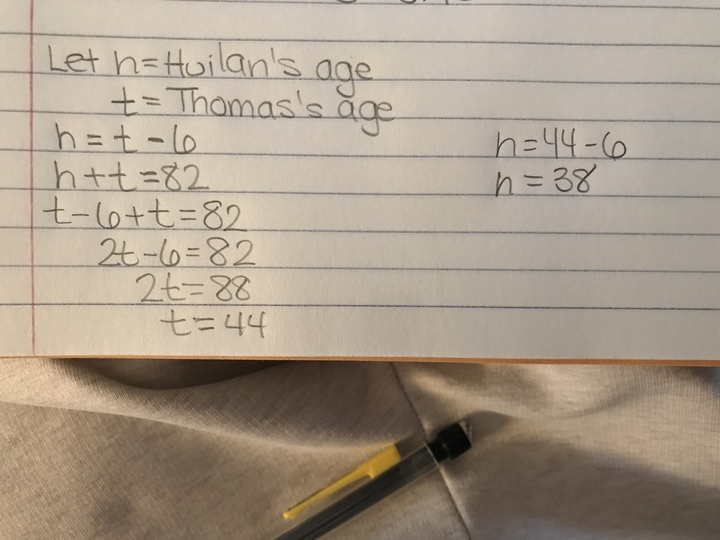 Let h=Huilan's age
t=Thomas's age
h=t-6
h+t=82
t-6+t=82
2t-6=82
2t=88
t=44
h=44-6
h=38